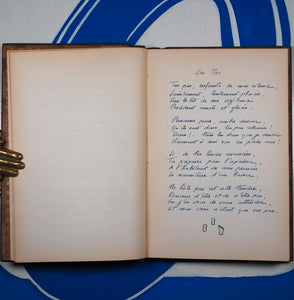 Les Pas
Tes pas, enfants de mon silence,
Saintement, lentement placés,
Vers le lit de ma vigilance
Procèdent muets et glacés.
Personne pure, ombre divine,
Qu'ils sont doux, tes pas retenus !
Dieux !.. tous les dons que je devine
Viennent à moi sur ces pieds nus !
Si, de tes lèvres avancées,
Tu prépares pour l'apaiser,
A l'habitant de mes pensées
La nourriture d'un baiser,
Ne hâte pas cet acte tendre,
Douceur d'être et de n'être pas,
Car j'ai vécu de vous attendre,
Et mon cœur n'était que vos pas.